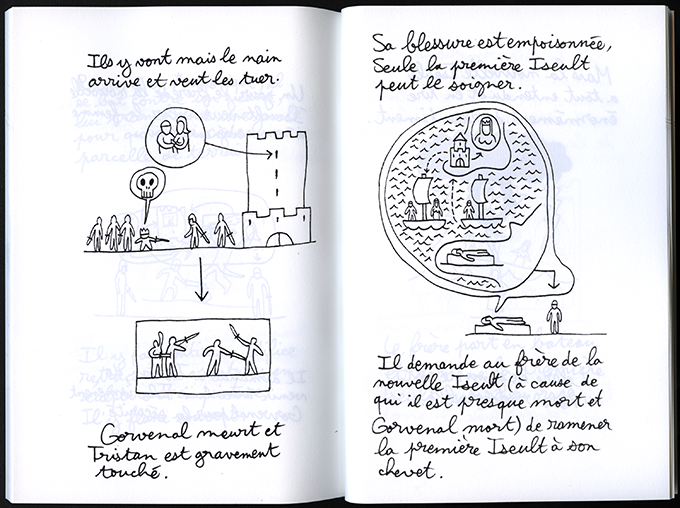 Ils y vont mais le nain
arrive et veut les tuer.
Gorvenal meurt et
Tristan est gravement
touché.
Sa blessure est empoisonnée,
Seule la première Iseult
peut le soigner.
Il demande au frère de la
nouvelle Iseult (à cause de
qui il est presque mort et
Gorvenal mort) de ramener
la première Iseult à son
chevet.